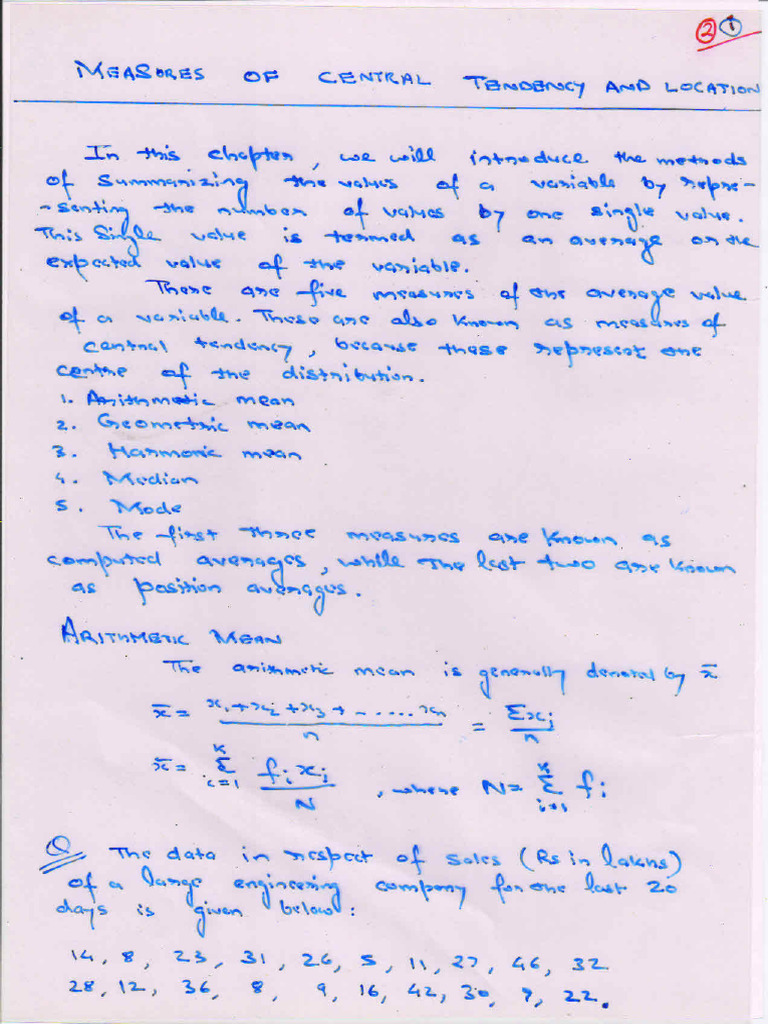 2 1
MEASURES OF CENTRAL TENDENCY AND LOCATION
In this chapter, we will introduce the methods
of summarizing the values of a variable by repre-
-senting the number of values by one single value.
This single value is termed as an average or the
expected value of the variable.
There are five measures of the average value
of a variable. These are also known as measures of
central tendency, because these represent the
centre of the distribution.
1. Arithmetic mean
2. Geometric mean
3. Harmonic mean
4. Median
5. Mode
The first three measures are known as
computed averages, while the last two are known
as position averages.
ARITHMETIC MEAN
The arithmetic mean is generally denoted by x̄
x̄ = x₁+x₂+x₃+-.....xn / n = Σxi / n
x̄ = Σ(i=1 to K) fi xi / N, where N = Σ(i=1 to K) fi
Q The data in respect of sales (Rs in lakhs)
of a large engineering company for the last 20
days is given below:
14, 8, 23, 31, 26, 5, 11, 27, 46, 32
28, 12, 36, 8, 9, 16, 42, 30, 9, 22.